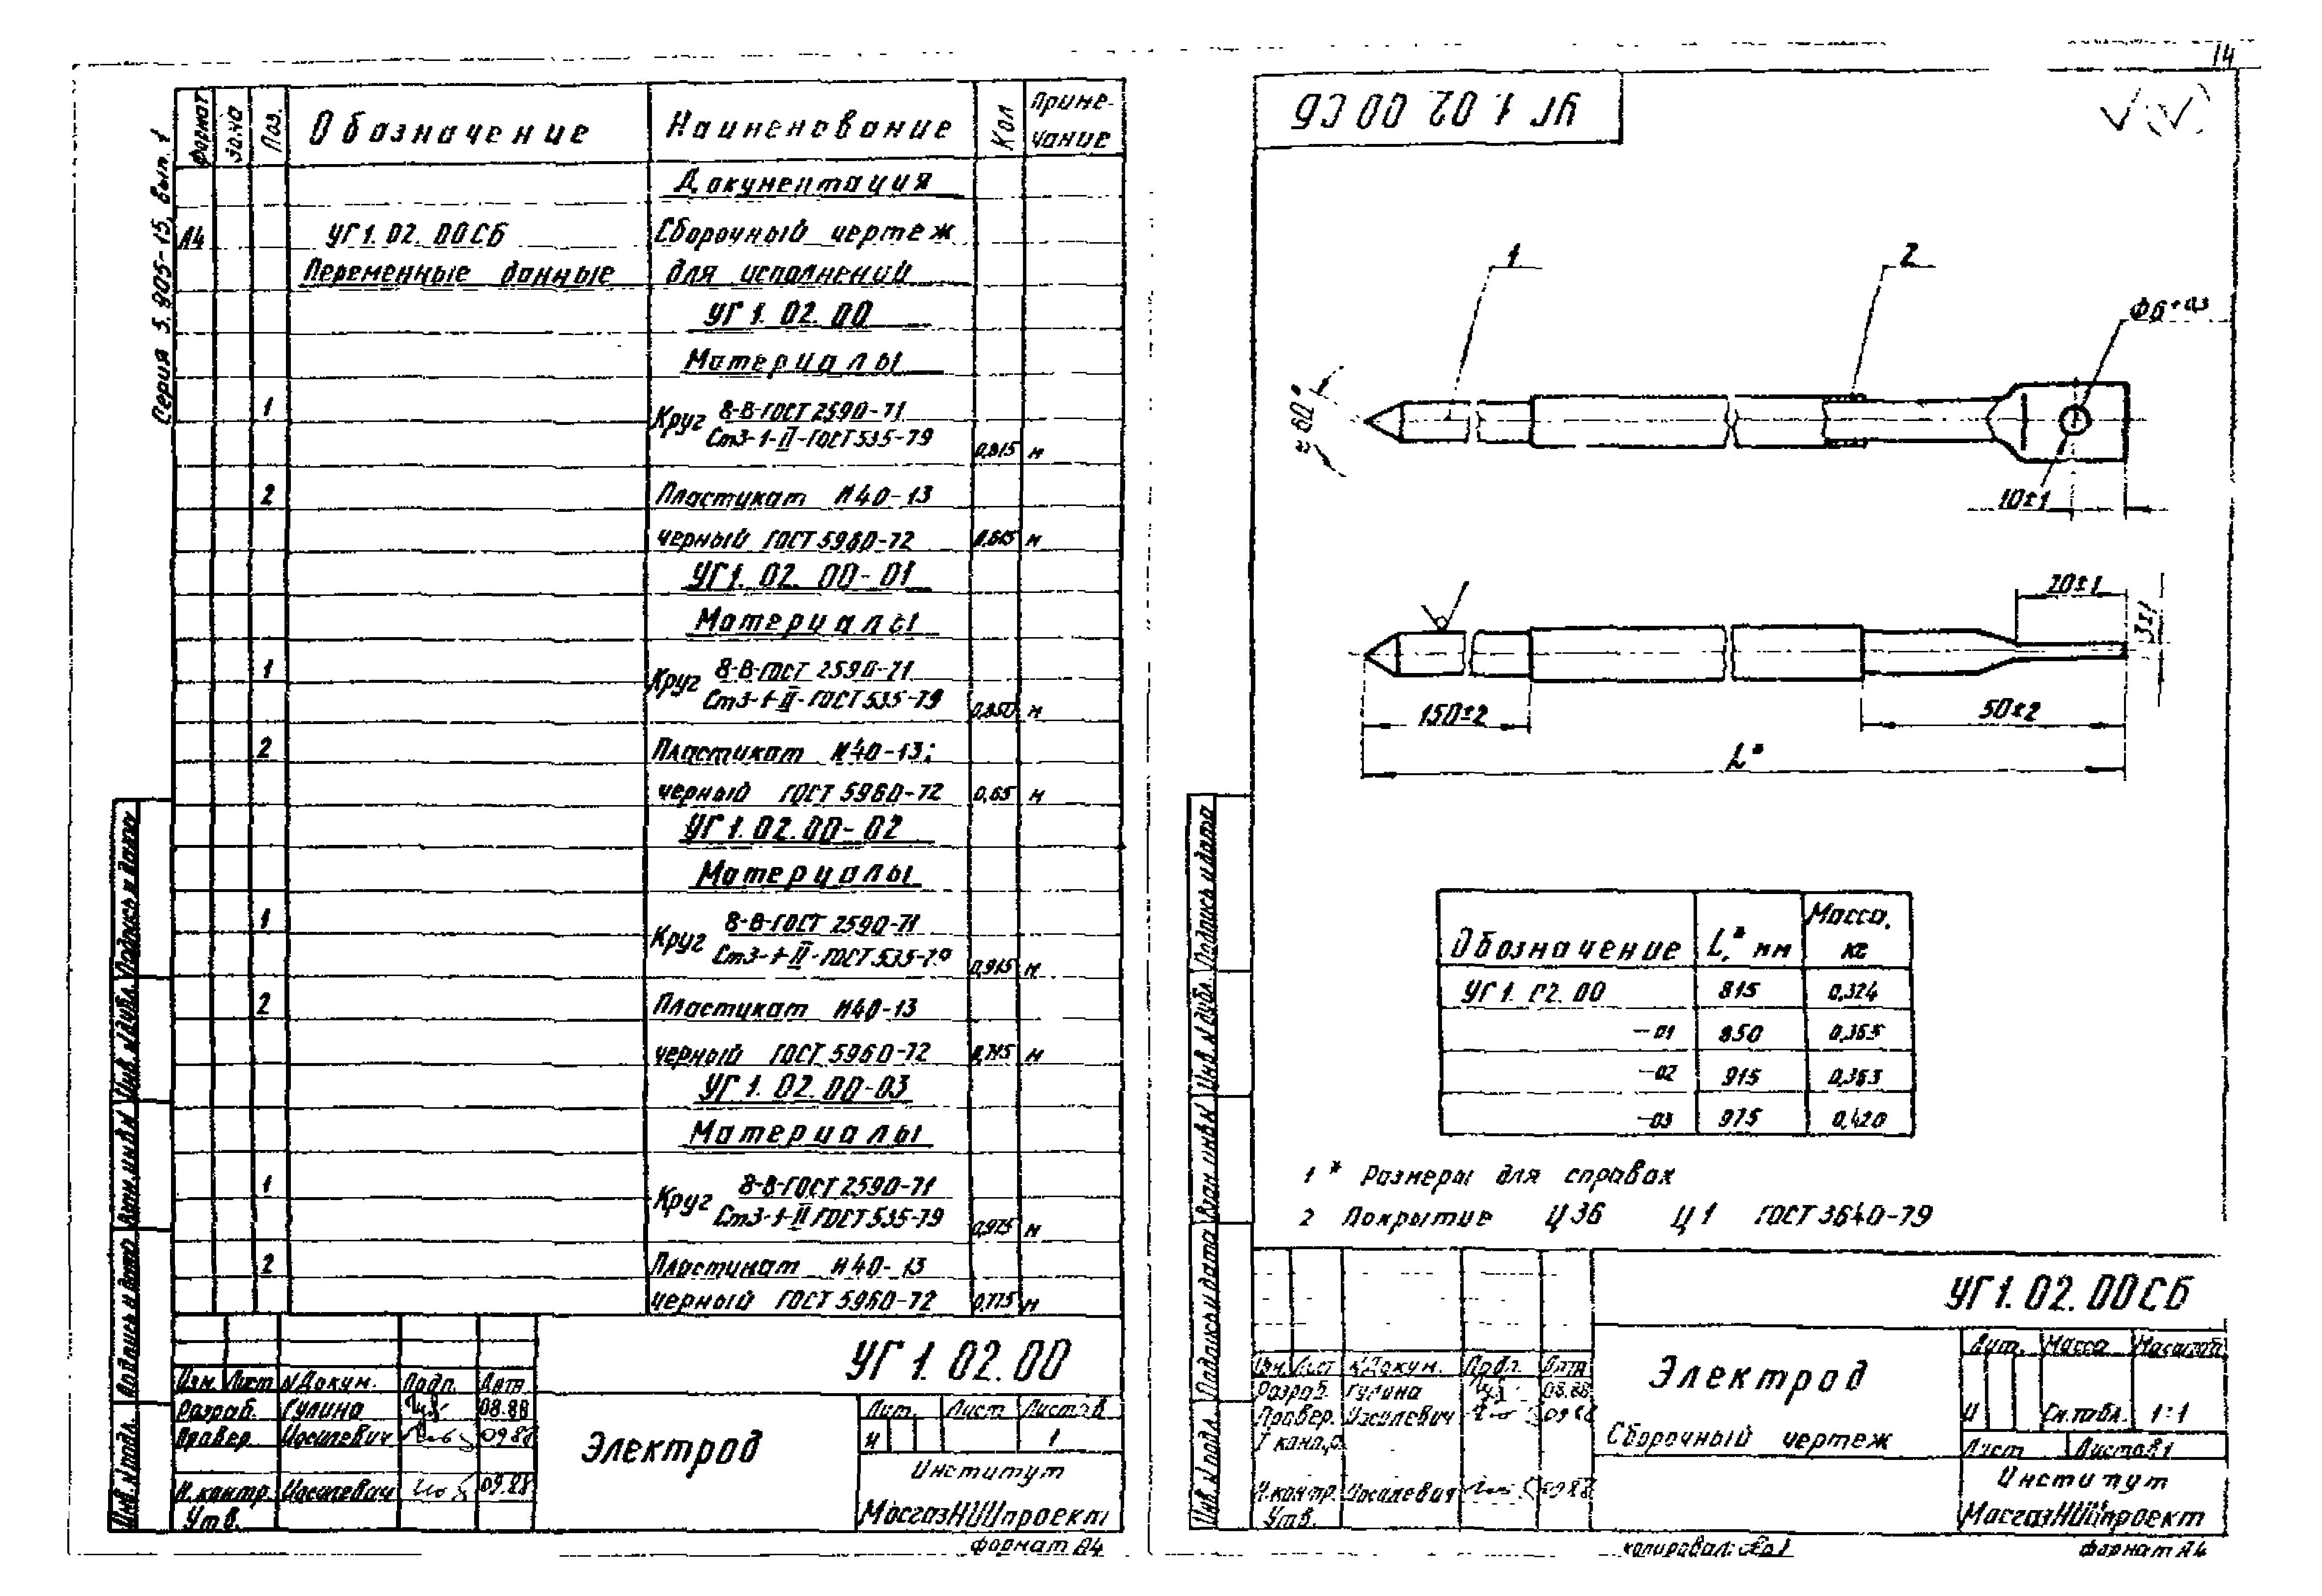 14
Серия 5.905-15, вып. 1
Формат Зона Поз. Обозначение Наименование Кол Приме-
чание
Документация
А4 УГ1.02.00СБ Сборочный чертеж
Переменные данные для исполнений
УГ1.02.00
Материалы
1 Круг 8-В-ГОСТ 2590-71
Ст3-1-II-ГОСТ 535-79
0,815 м
2 Пластикат И40-13
черный ГОСТ 5960-72 м
УГ1.02.00-01
Материалы
1 Круг 8-В-ГОСТ 2590-71
Ст3-1-II-ГОСТ 535-79
0,850 м
2 Пластикат И40-13;
черный ГОСТ 5960-72 0,65 м
УГ1.02.00-02
Материалы
1 Круг 8-В-ГОСТ 2590-71
Ст3-1-II-ГОСТ 535-79
0,915 м
2 Пластикат И40-13
черный ГОСТ 5960-72 м
УГ1.02.00-03
Материалы
1 Круг 8-В-ГОСТ 2590-71
Ст3-1-II ГОСТ 535-79
0,975 м
2 Пластикат И40-13
черный ГОСТ 5960-72 0,775 м
Инв. N подл. Подпись и дата Взам. инв. N Инв. N дубл. Подпись и дата
УГ1.02.00
Изм. Лист N Докум. Подп. Дата
Разраб. Гулина 08.88
Провер. Иосилевич 09.88
Н.контр. Иосилевич 09.88
Утв.
Электрод
Лит. Лист Листов
И 1
Институт
МосгазНИИпроект
формат А4
УГ1.02.00СБ
1
2
Ф6+0,3
≈60°
10±1
20±1
3±1
150±2
50±2
L*
Обозначение L,* мм Масса,
кг
УГ1.02.00 815 0,324
-01 850 0,365
-02 915 0,363
-03 975 0,420
1 * Размеры для справок
2 Покрытие Ц36 Ц1 ГОСТ 3640-79
Инв. N подл. Подпись и дата Взам. инв. N Инв. N дубл. Подпись и дата
УГ1.02.00СБ
Изм. Лист N Докум. Подп. Дата
Разраб. Гулина 08.88
Провер. Иосилевич 09.88
Т.контр.
Н.контр. Иосилевич 09.88
Утв.
Электрод
Сборочный чертеж
Лит. Масса Масштаб
И См.табл. 1:1
Лист Листов 1
Институт
МосгазНИИпроект
копировал:
формат А4